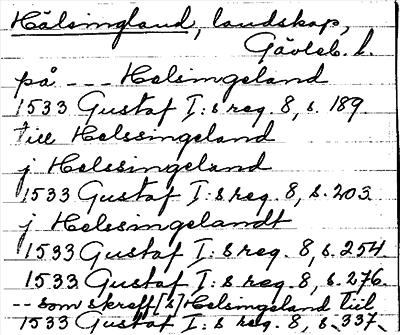 Hälsingland, landskap,
Gävleb. l.
på --- Helsingeland
1533 Gustaf I:s reg. 8, s. 189.
till Helssingeland
j Helssingeland
1533 Gustaf I:s reg. 8, s. 203
j Helssingelandt
1533 Gustaf I:s reg. 8, s. 254
1533 Gustaf I:s reg. 8, s. 276.
-- som skreff[s] Helsingeland till
1533 Gustaf I:s reg. 8, s. 337.